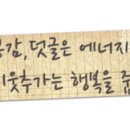 공감,덧글은 에너지
이웃추가는 행복을 줍